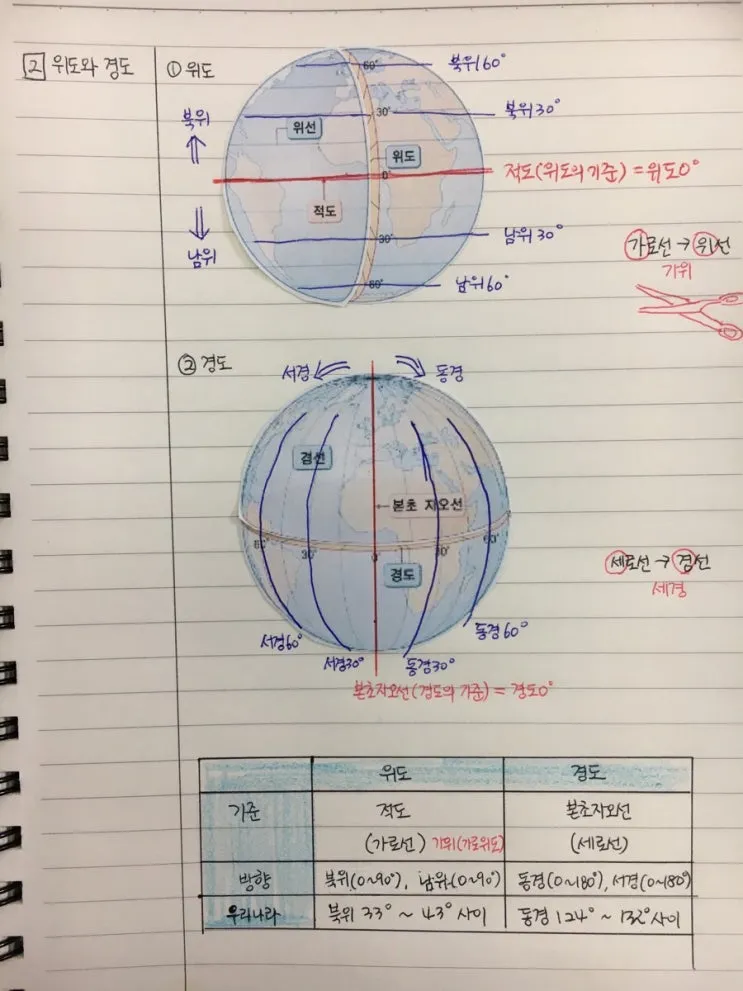 2 위도와 경도
① 위도
북위
남위
60°
북위 60°
30°
북위 30°
위선
위도
0°
적도(위도의 기준) = 위도 0°
적도
30°
남위 30°
60°
남위 60°
가로선 → 위선
가위
② 경도
서경
동경
경선
본초 자오선
60°
30°
0°
30°
60°
경도
세로선 → 경선
세경
서경 60°
서경 30°
동경 30°
동경 60°
본초자오선(경도의 기준) = 경도 0°
위도 경도
기준 적도 본초자오선
(가로선) 가위(가로위도) (세로선)
방향 북위(0~90°), 남위(0~90°) 동경(0~180°), 서경(0~180°)
우리나라 북위 33° ~ 43° 사이 동경 124° ~ 132° 사이